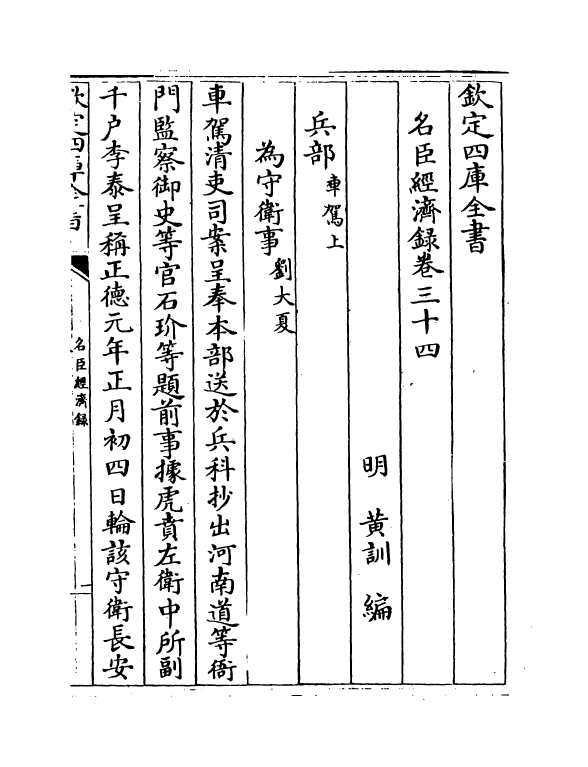 欽定四庫全書
名臣經濟錄卷三十四
明 黃訓 編
兵部車駕上
為守衛事劉大夏
車駕清吏司案呈奉本部送於兵科抄出河南道等衙
門監察御史等官石玠等題前事據虎賁左衛中所副
千户李泰呈稱正德元年正月初四日輪該守衛長安
欽定四庫全書
名臣經濟錄